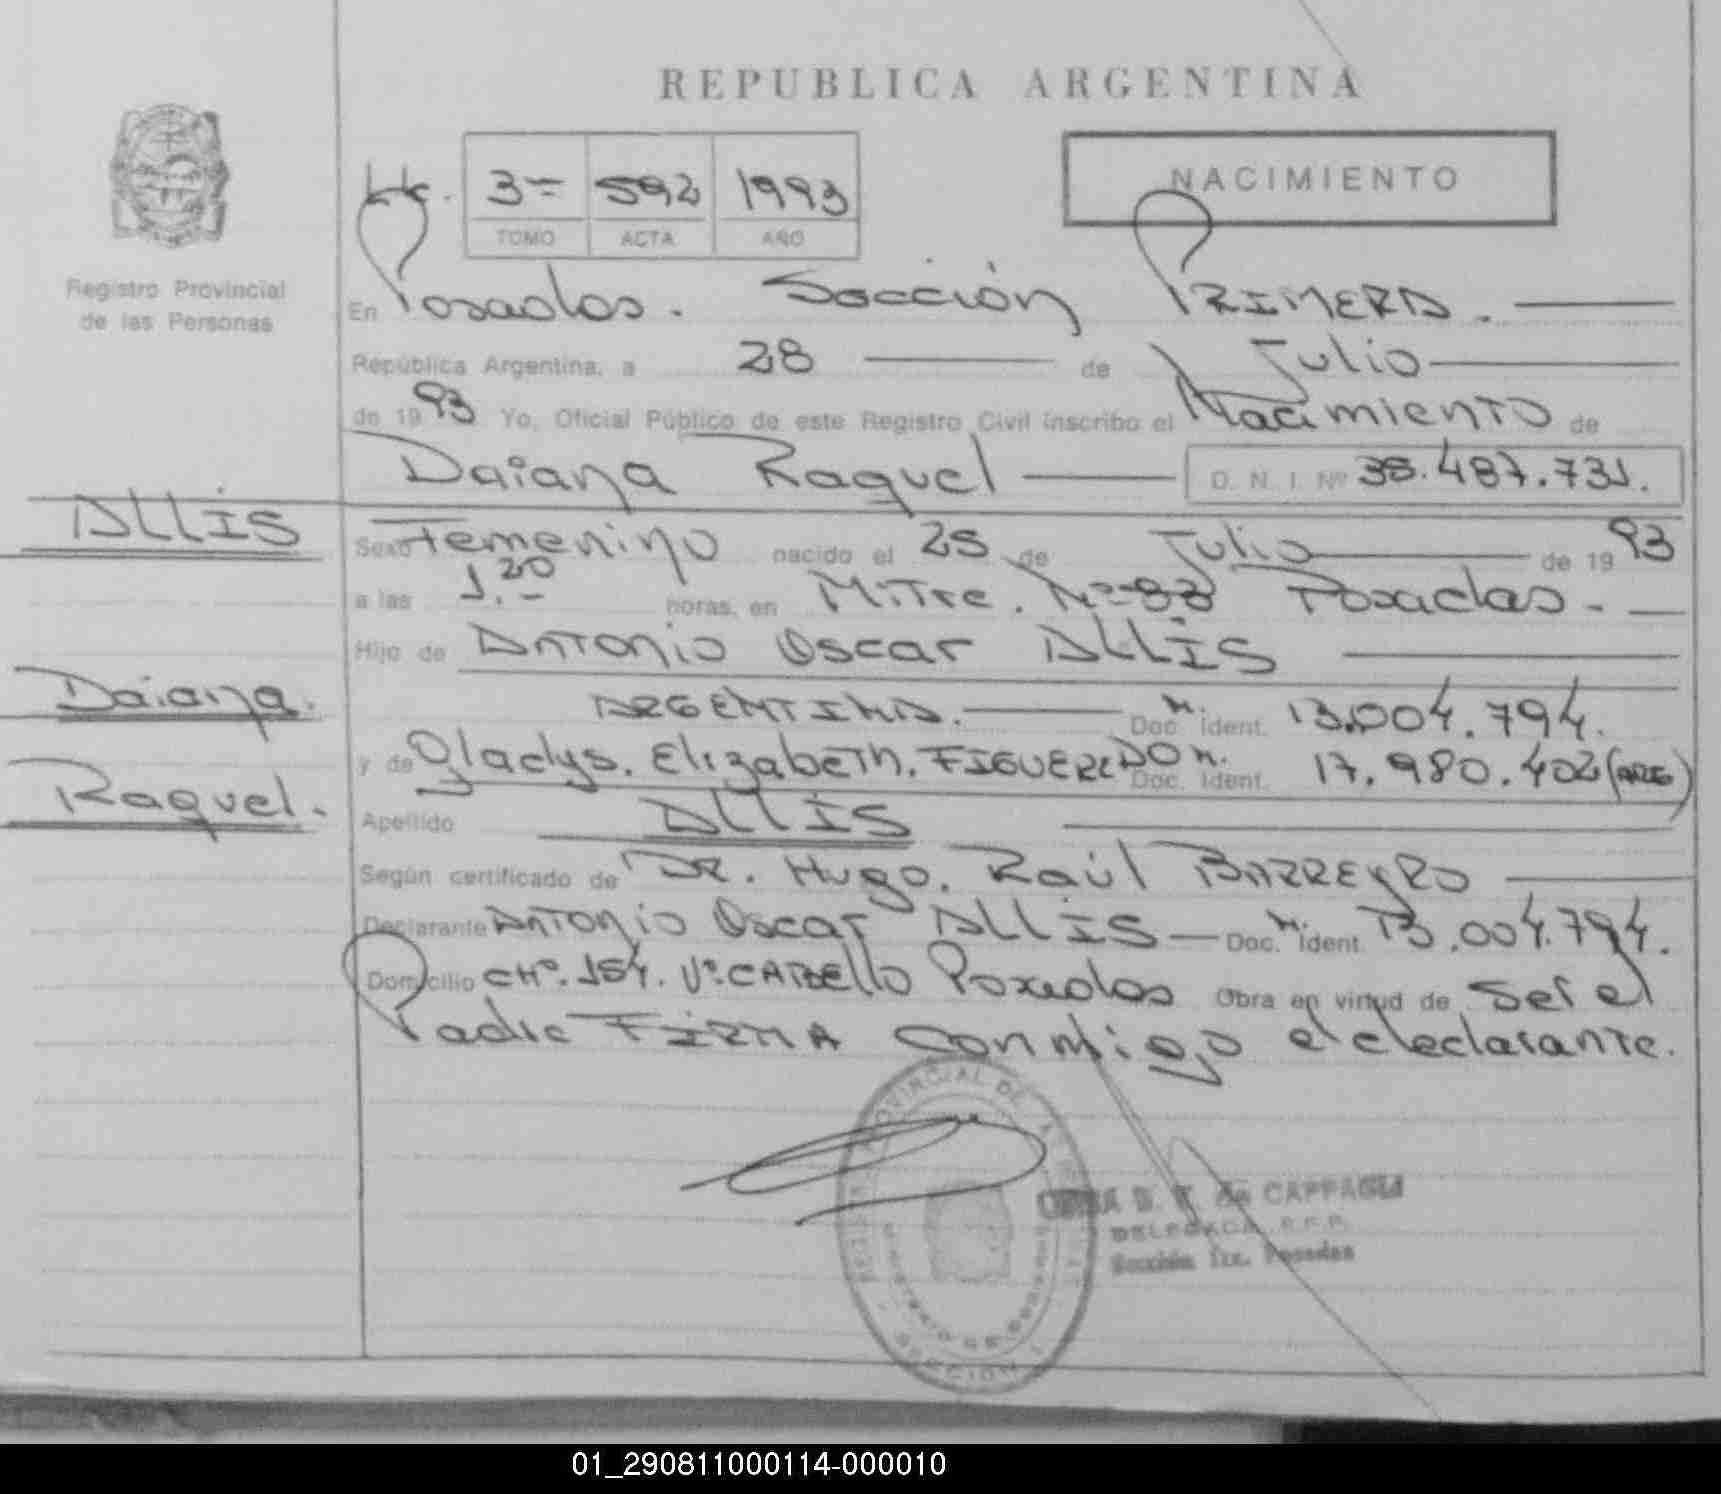 REPUBLICA ARGENTINA
3= 592 1993
TOMO ACTA AÑO
NACIMIENTO
Registro Provincial
de las Personas
En Posadas. Sección PRIMERA.
República Argentina, a 28 de Julio
de 1993 Yo, Oficial Público de este Registro Civil inscribo el Nacimiento de
Daiana Raquel D. N. I. Nº 38.487.731.
ALLIS
Sexo Femenino nacido el 25 de Julio de 1993
a las 1.20 horas, en Mitre. Nº 88 Posadas.
Hijo de Antonio Oscar ALLIS
Daiana.
ARGENTINA. Doc. Ident. 13.004.794.
y de Gladys. Elizabeth. FIGUEREDO M. Doc. Ident. 17.980.402 (ARG)
Raquel.
Apellido ALLIS
Según certificado de DR. Hugo. Raúl BARREYRO
Declarante Antonio Oscar ALLIS Doc. M. Ident. 13.004.794.
Domicilio CHª. 154. Vª. CABELLO Posadas Obra en virtud de Ser el
Padre FIRMA Conmigo el declarante.
REGISTRO PROVINCIAL DE LAS
SECCION 1
B. de CAPPAGLI
DELEGADA R.P.P.
Sección 1ra. Posadas
01_290811000114-000010